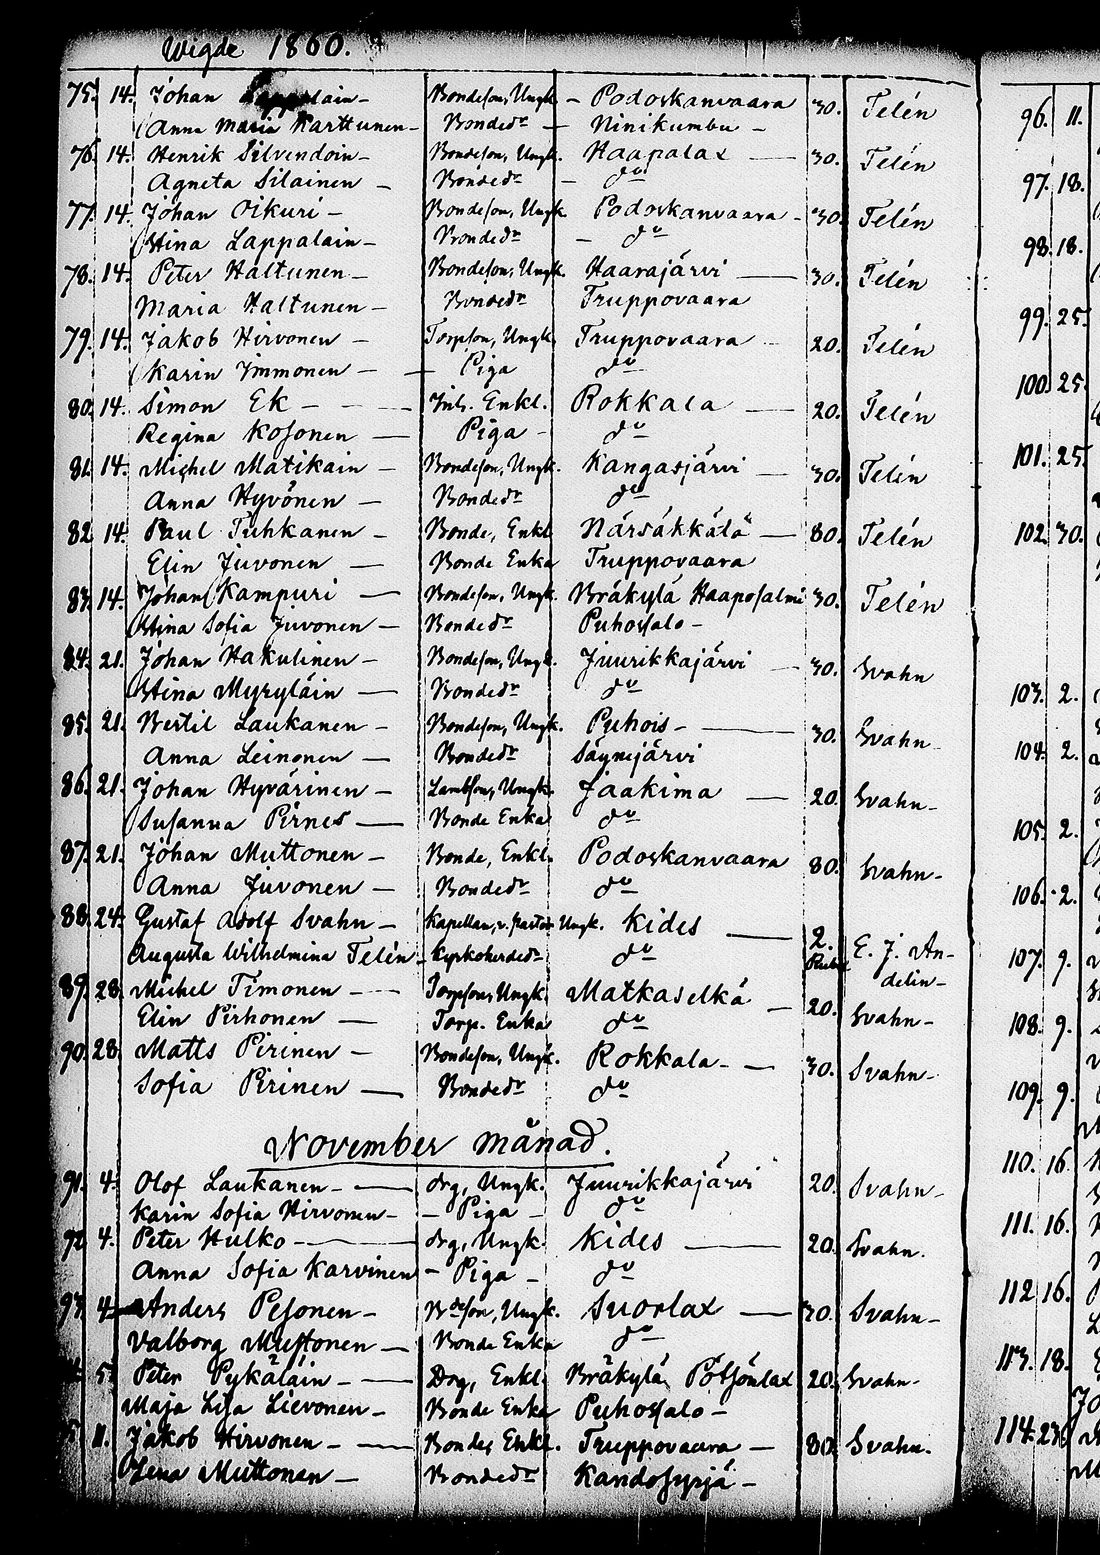 Wigde 1860.
75. 14. Johan Lappalain - Bondeson, Ungk. - Podoskanvaara 30. Telén
Anna Maria Karttunen - Bondedr - Ninikumbu -
76. 14. Henrik Silvendoin - Bondeson, Ungk. Haapalax - 30. Telén
Agneta Silainen - Bondedr - do
77. 14. Johan Oikuri - Bondeson, Ungk. Podoskanvaara - 30. Telén
Stina Lappalain - Bondedr - do
78. 14. Peter Haltunen - Bondeson, Ungk. Haarajärvi - 30. Telén
Maria Haltunen - Bondedr Truppovaara
79. 14. Jakob Hirvonen - Torpson, Ungk. Truppovaara - 20. Telén
Karin Immonen - - Piga do
80. 14. Simon Ek - - Inh. Enkl. Rokkala - 20. Telén
Regina Kosonen - Piga - do
81. 14. Michel Matikain - Bondeson, Ungk. Kangasjärvi - 30. Telén
Anna Hyvönen - Bondedr do
82. 14. Paul Tuhkanen - Bonde, Enkl. Närsäkkälä - 80. Telén
Elin Juvonen - Bonde Enka Truppovaara
83. 14. Johan Kampuri - Bondeson, Ungk. Bräkylä Haaposalmi 30. Telén
Stina Sofia Juvonen - Bondedr Puhossalo -
84. 21. Johan Hakulinen - Bondeson, Ungk. Juurikkajärvi - 30. Svahn
Stina Myryläin - Bondedr do
85. 21. Bertil Laukanen - Bondeson, Ungk. Puhois - 30. Svahn -
Anna Leinonen - Bondedr Säynejärvi
86. 21. Johan Hyvärinen - Lambson, Ungk. Jaakima - 20. Svahn -
Susanna Pirnes - Bonde Enka do
87. 21. Johan Muttonen - Bonde, Enkl. Podoskanvaara 80. Svahn -
Anna Juvonen - Bondedr do
88. 24. Gustaf Adolf Svahn - Kapellan, v. Pastor Ungk. Kides - 2. E. J. An-
Augusta Wilhelmina Telén - Kyrkoherdedr do Rubel delin -
89. 28. Michel Timonen - - Torpson, Ungk. Matkaselkä - 20. Svahn -
Elin Pirhonen - Torp. Enka do
90. 28. Matts Pirinen - Bondeson, Ungk. Rokkala - - 30. Svahn -
Sofia Pirinen - Bondedr do
November månad.
91. 4. Olof Laukanen - - drg, Ungk. Juurikkajärvi 20. Svahn -
Karin Sofia Hirvonen - - Piga - do
92. 4. Peter Hulko - drg, Ungk. Kides - 20. Svahn.
Anna Sofia Karvinen - Piga - do
93. 4. Anders Pesonen - Bdeson, Ungk. Suorlax - 30. Svahn -
Valborg Muttonen - Bonde Enka do
5. Peter Pykäläin - - Drg, Enkl. Bräkylä Pötsönlax 20. Svahn -
Maja Lisa Lievonen - Bonde Enka Puhossalo -
11. Jakob Hirvonen - Bonde, Enkl. Truppovaara - 80. Svahn.
Lena Muttonen - Bondedr Kandosyrjä -
96. 11.
97. 18.
98. 18.
99. 25.
100. 25.
101. 25.
102. 30.
103. 2.
104. 2.
105. 2.
106. 2.
107. 9.
108. 9.
109. 9.
110. 16.
111. 16.
112. 16.
113. 18.
114. 23.